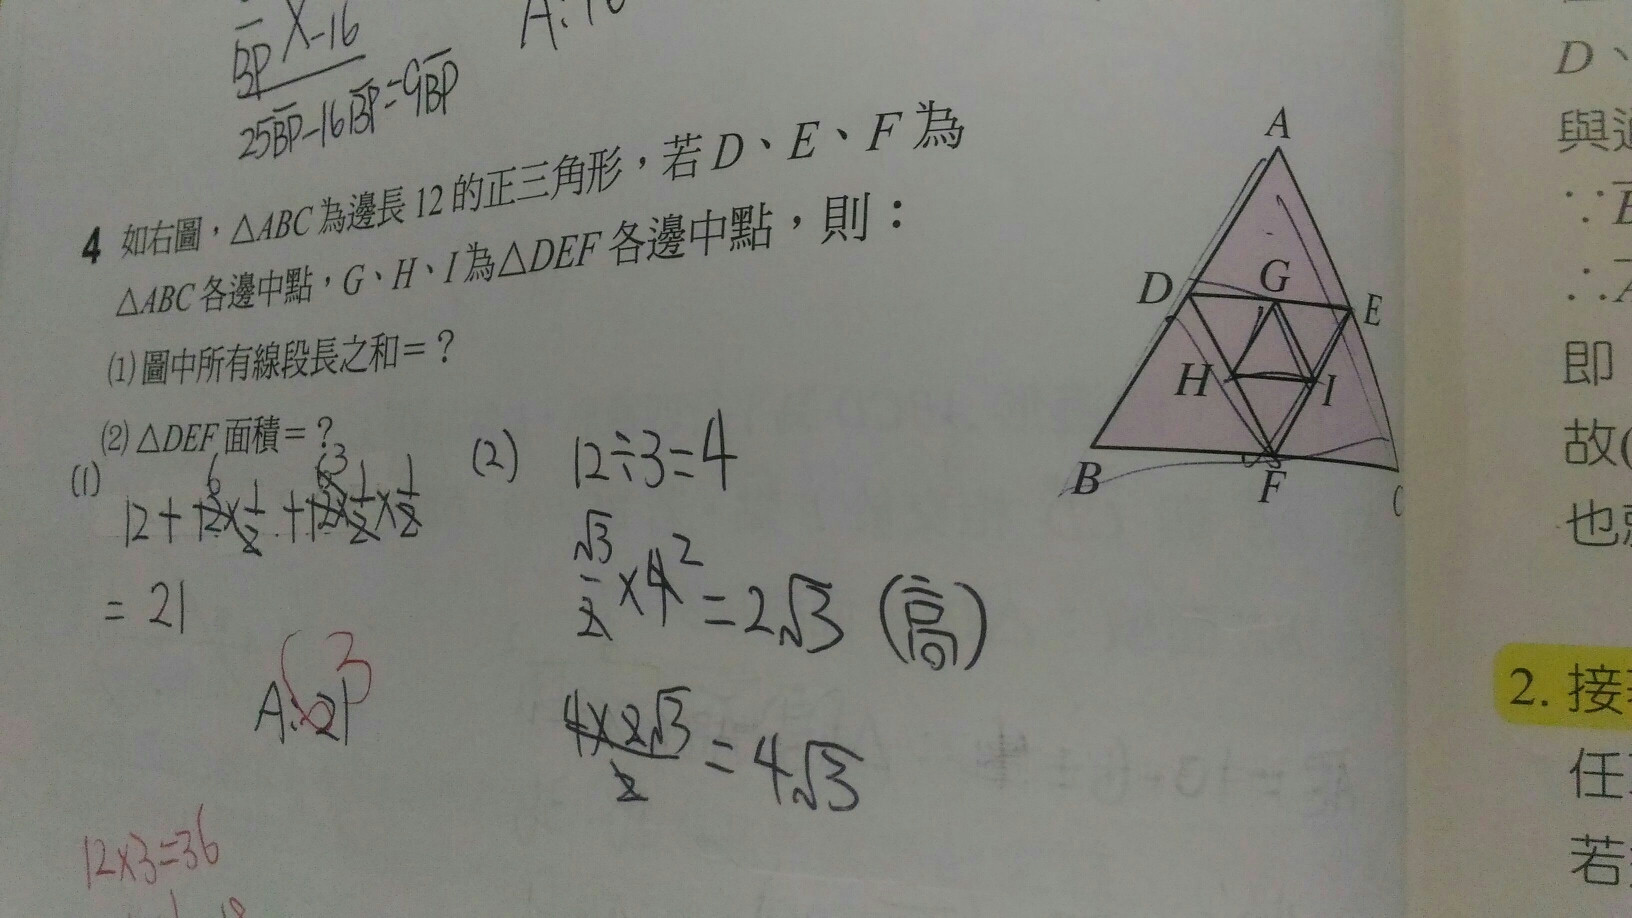 BP X-16
25BP-16BP=9BP
4 如右圖,△ABC為邊長12的正三角形,若D、E、F為
△ABC各邊中點,G、H、I為△DEF各邊中點,則:
(1)圖中所有線段長之和=?
(2)△DEF面積=?
(1)
12+12×1/2+12×1/2×1/2
6 6 3
=21
A:21
63
12×3=36
(2) 12÷3=4
√3/2×4=2√3 (高)
4×2√3/2=4√3
A
D
G
E
H
I
B
F
D、
與
∵
∴
即
故(
也
2. 接
任
若